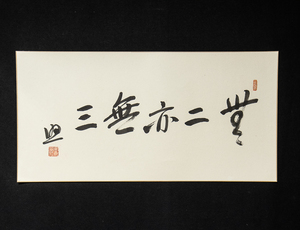 無二亦無三